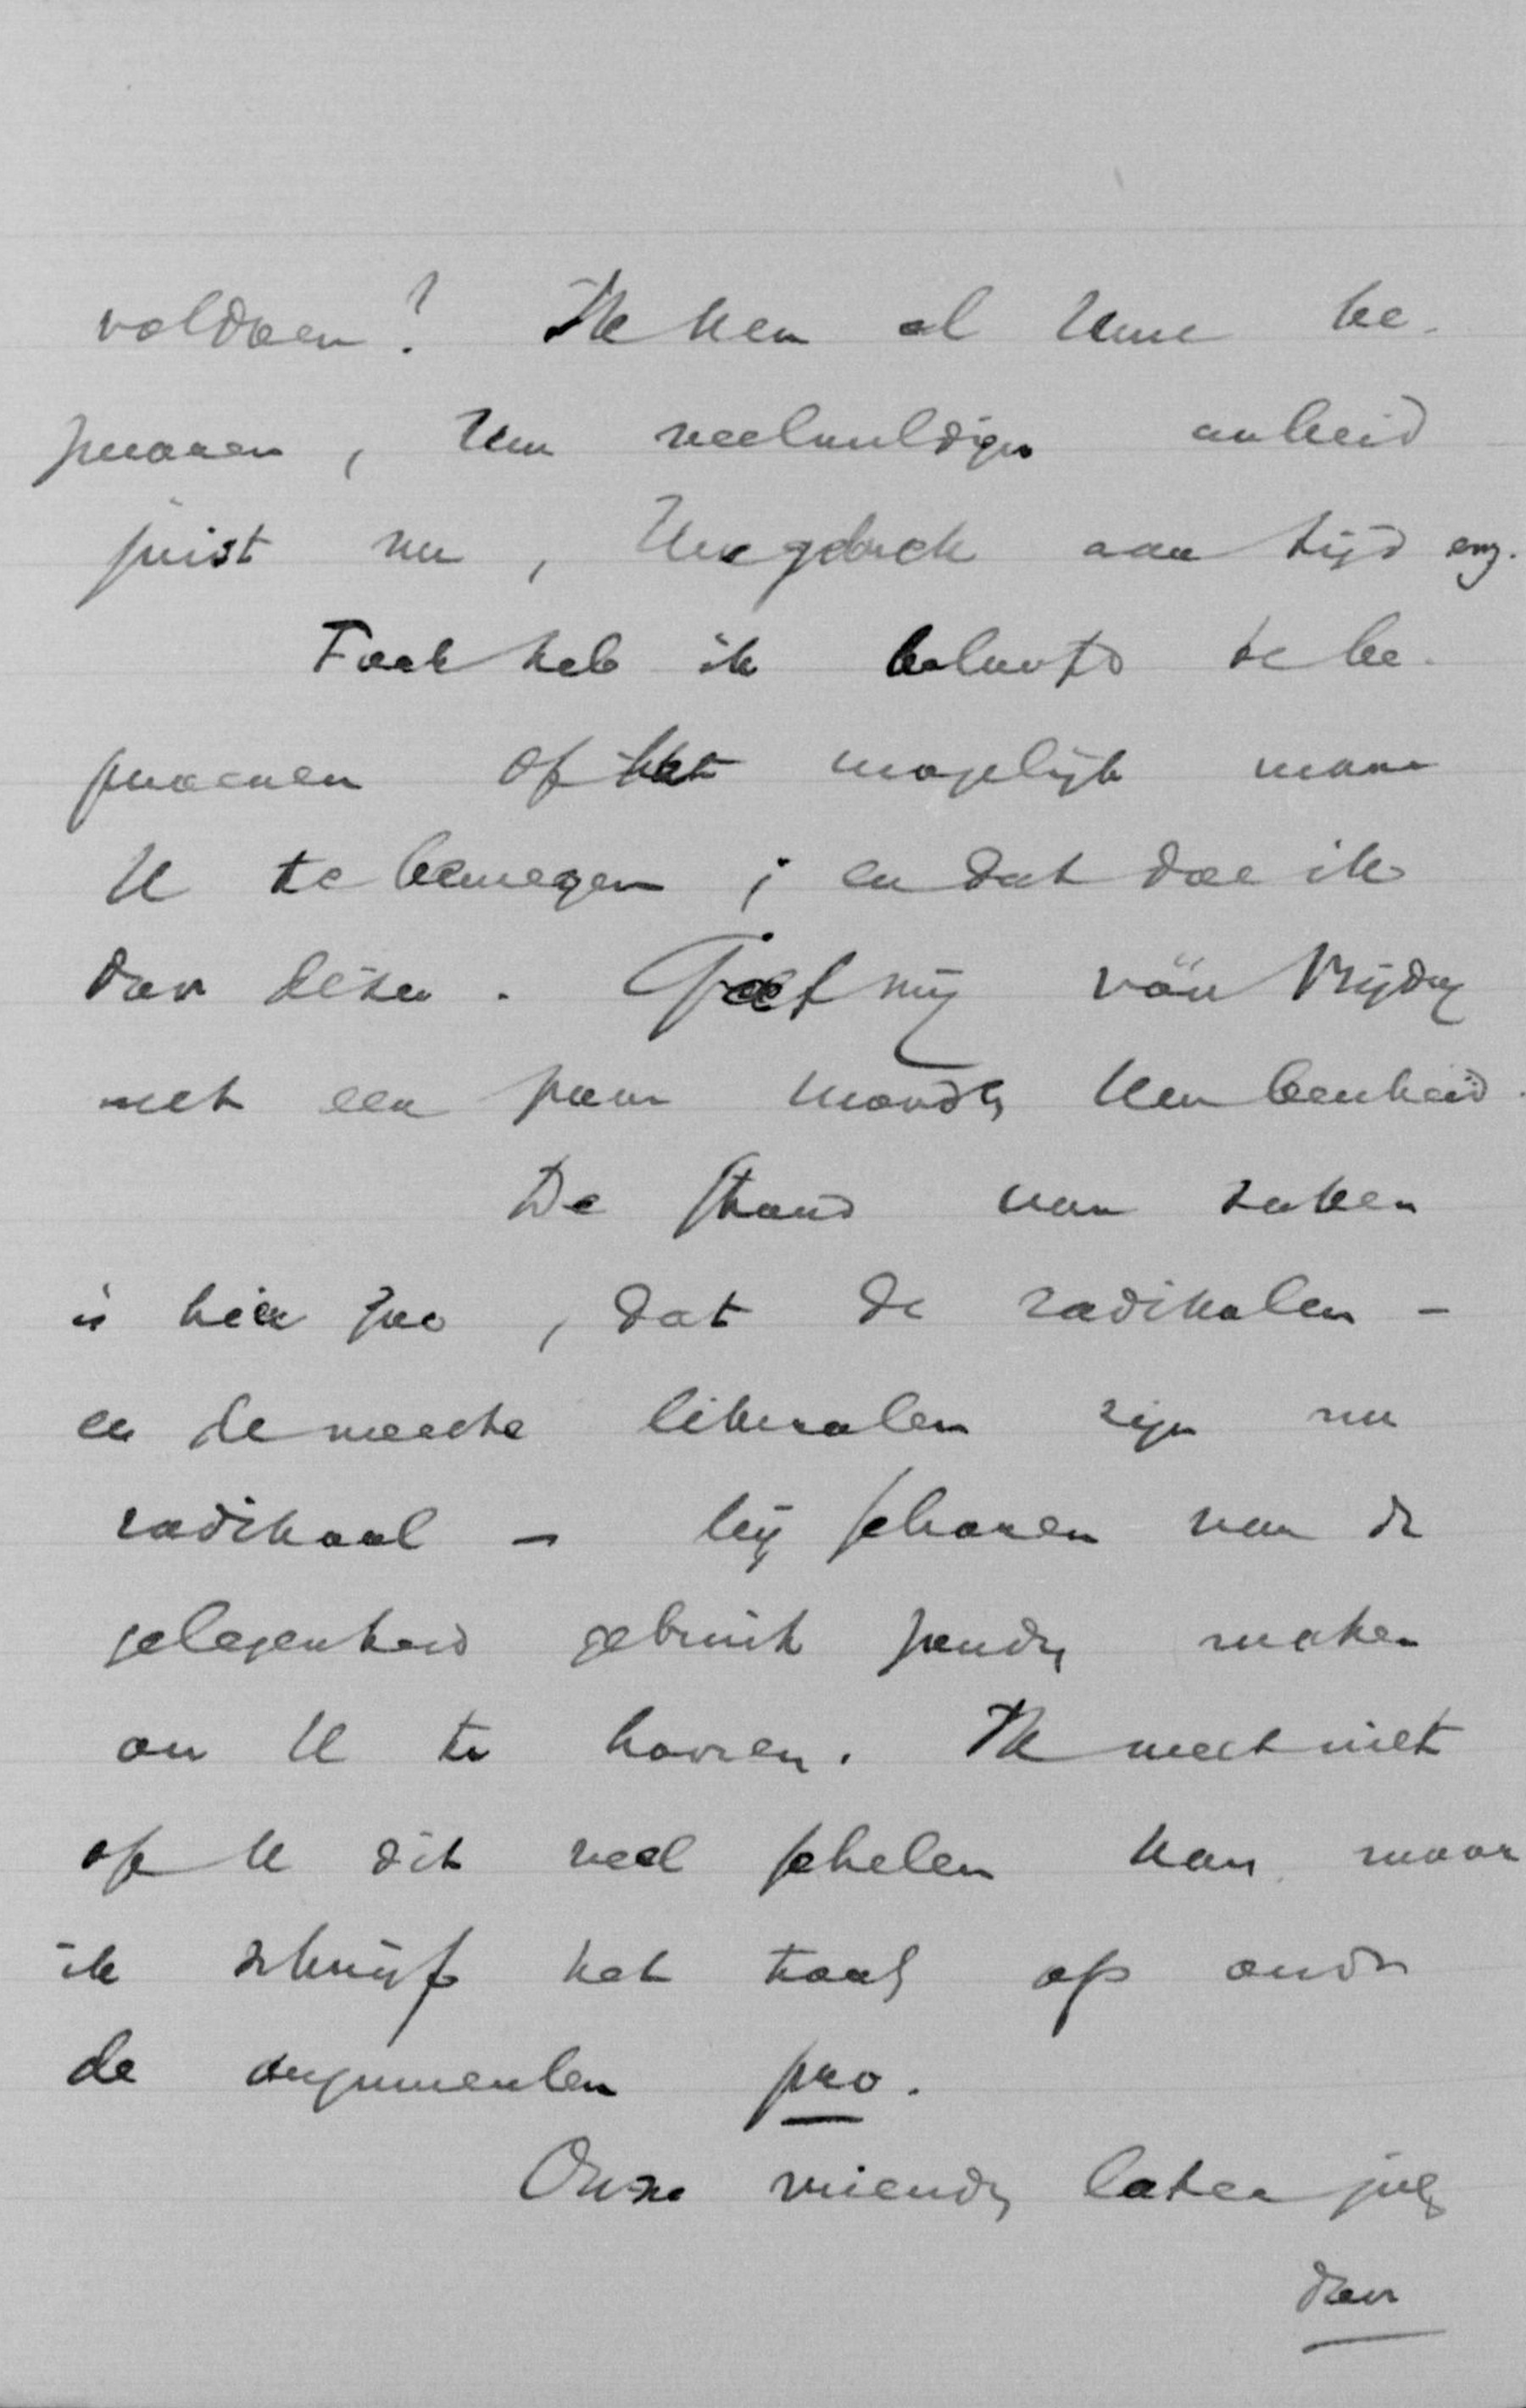 voldoen? Ik ken al Uwe be-
zwaren, Uw veelvuldigen arbeid
juist nu, Uw gebrek aan tijd enz.
Toch heb ik beloofd te be-
proeven of het mogelijk ware
U te bewegen; en dat doe ik
door dezen. Geef mij vóór Vrijdag
met een paar woorden Uw bescheid.
De stand van zaken
is hier zoo, dat de radikalen -
en de meeste liberalen zijn nu
radikaal - bij scharen van de
gelegenheid gebruik zouden maken
om U te hooren. Ik weet niet
of U dit veel schelen kan, maar
ik schrijf het toch op onder
de argumenten pro.
Onze vrienden laten
door